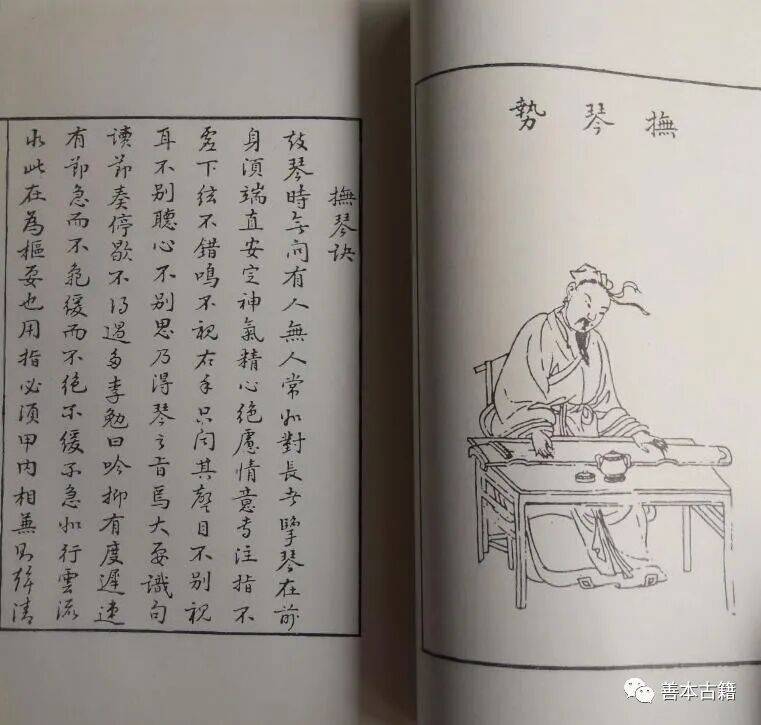 撫琴勢
撫琴訣
鼓琴時無问有人無人常如對長者琴在前
身須端直安定神氣精心絕慮情意專注指不
虛下弦不錯鳴不視右手只闻其聲目不別視
耳不別聽心不別思乃得琴之旨焉大要識句
读節奏停歇不得過多李勉曰吟抑有度遲速
有節急而不亂緩而不绝不緩不急如行雲流
水此在為樞要也用指必須甲内相兼則清
善本古籍